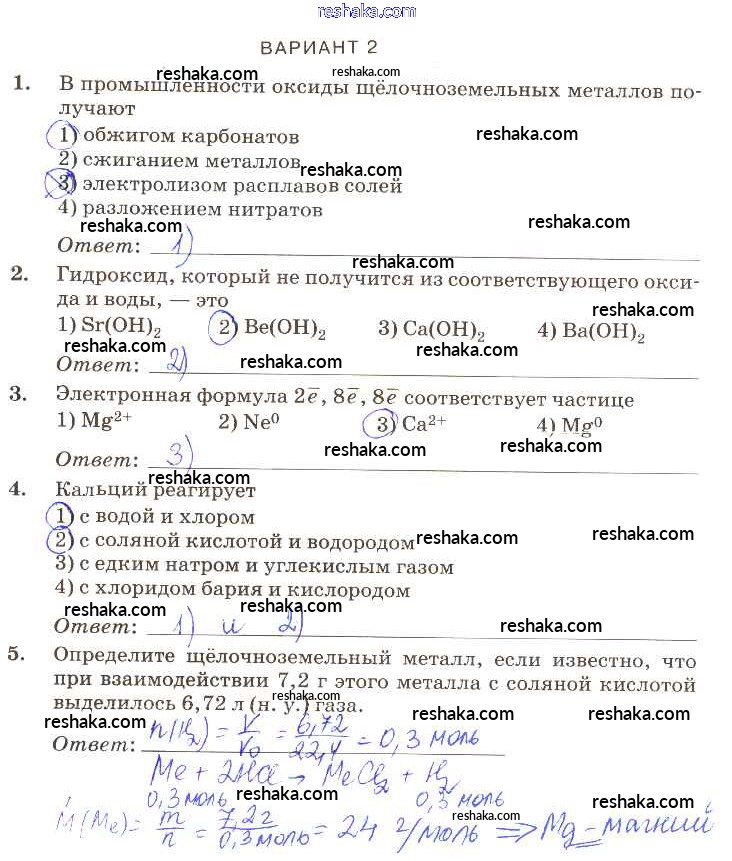 reshaka.com
ВАРИАНТ 2
reshaka.com reshaka.com
1. В промышленности оксиды щёлочноземельных металлов по-
лучают
1) обжигом карбонатов reshaka.com
2) сжиганием металлов
reshaka.com
3) электролизом расплавов солей
4) разложением нитратов
reshaka.com reshaka.com
Ответ: 1)
reshaka.com
2. Гидроксид, который не получится из соответствующего окси-
да и воды, — это
reshaka.com
1) Sr(OH)₂ 2) Be(OH)₂ 3) Ca(OH)₂ 4) Ba(OH)₂
reshaka.com reshaka.com
Ответ: 2)
3. Электронная формула 2e̅, 8e̅, 8e̅ соответствует частице
1) Mg²⁺ 2) Ne⁰ 3) Ca²⁺ 4) Mg⁰
reshaka.com reshaka.com
Ответ: 3)
reshaka.com
4. Кальций реагирует
1) с водой и хлором
2) с соляной кислотой и водородом reshaka.com
reshaka.com
3) с едким натром и углекислым газом
4) с хлоридом бария и кислородом
reshaka.com reshaka.com
Ответ: 1) и 2) reshaka.com
5. Определите щёлочноземельный металл, если известно, что
при взаимодействии 7,2 г этого металла с соляной кислотой
выделилось 6,72 л (н. у.) газа.
reshaka.com reshaka.com reshaka.com reshaka.com
Ответ: n(H₂) = V/V₀ = 6,72/22,4 = 0,3 моль
Me + 2HCl → MeCl₂ + H₂
0,3 моль 0,3 моль
reshaka.com reshaka.com reshaka.com
M(Me) = m/n = 7,2 г/0,3 моль = 24 г/моль => Mg - магний